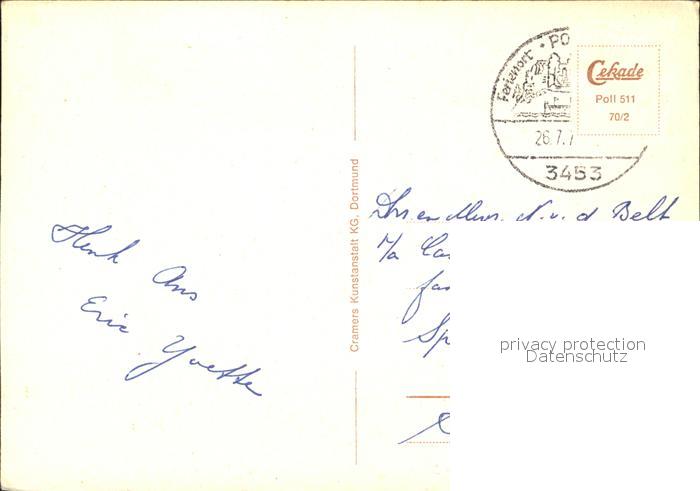 Ferienort · PO
26.7.7
3453
Cekade
Poll 511
70/2
Cramers Kunstanstalt KG. Dortmund
Henk Ans
Eric Yvette
N. v. d Belt
privacy protection
Datenschutz